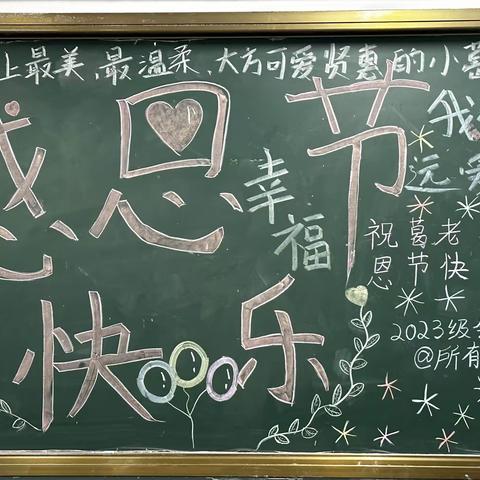 上最美、最温柔、大方可爱贤惠的小葛
感恩节
幸福
快乐
我
远爱
祝葛老
恩节快
2023级
@所有